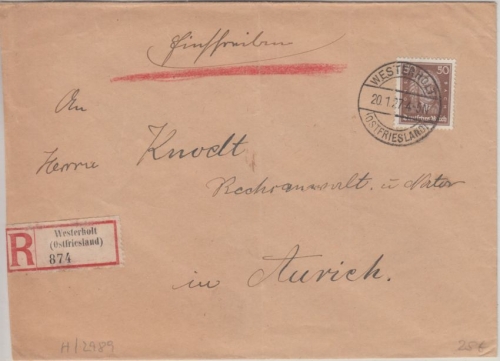 Einschreiben
WESTERHOLT
20.1.27.
(OSTFRIESLAND)
50
Deutsches Reich
An
Herrn Knodt
Rechtsanwalt u Notar
in Aurich.
R
Westerholt
(Ostfriesland)
874
H/2989
25€